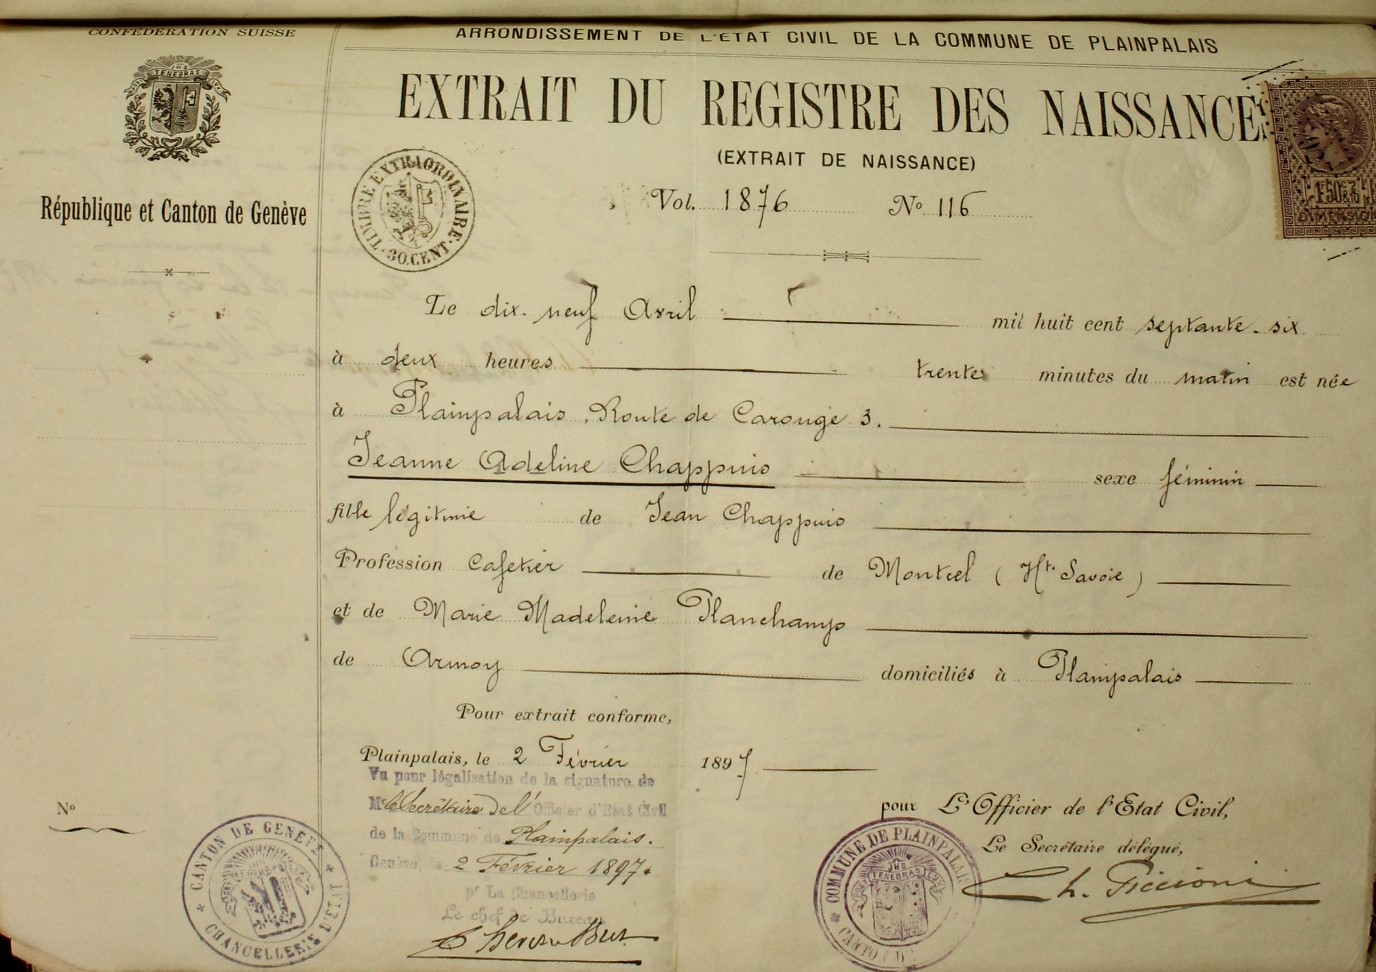 CONFÉDÉRATION SUISSE
POST TENEBRAS
République et Canton de Genève
ARRONDISSEMENT DE L'ÉTAT CIVIL DE LA COMMUNE DE PLAINPALAIS
EXTRAIT DU REGISTRE DES NAISSANCES
(EXTRAIT DE NAISSANCE)
TIMBRE EXTRAORDINAIRE. 30. CENT.
Vol. 1876 No 116
DIMENSION
Le dix-neuf Avril mil huit cent septante-six
à deux heures trente minutes du matin est née
à Plainpalais, Route de Carouge 3.
Jeanne Adeline Chappuis sexe féminin
fille légitime de Jean Chappuis
Profession Cafetier de Montcel (Hte Savoie)
et de Marie Madeleine Planchamp
de Armoy domiciliés à Plainpalais
Pour extrait conforme,
Plainpalais, le 2 Février 1897
Vu pour légalisation de la signature de
Mr le Secrétaire de l'Officier d'Etat Civil
de la Commune de Plainpalais.
Genève, le 2 Février 1897.
pr La Chancellerie
Le chef de Bureau
pour L'Officier de l'Etat Civil,
Le Secrétaire délégué,
Ch. Piccioni
No
CANTON DE GENÈVE
CHANCELLERIE
COMMUNE DE PLAINPALAIS
TENEBRAS
CANTON DE